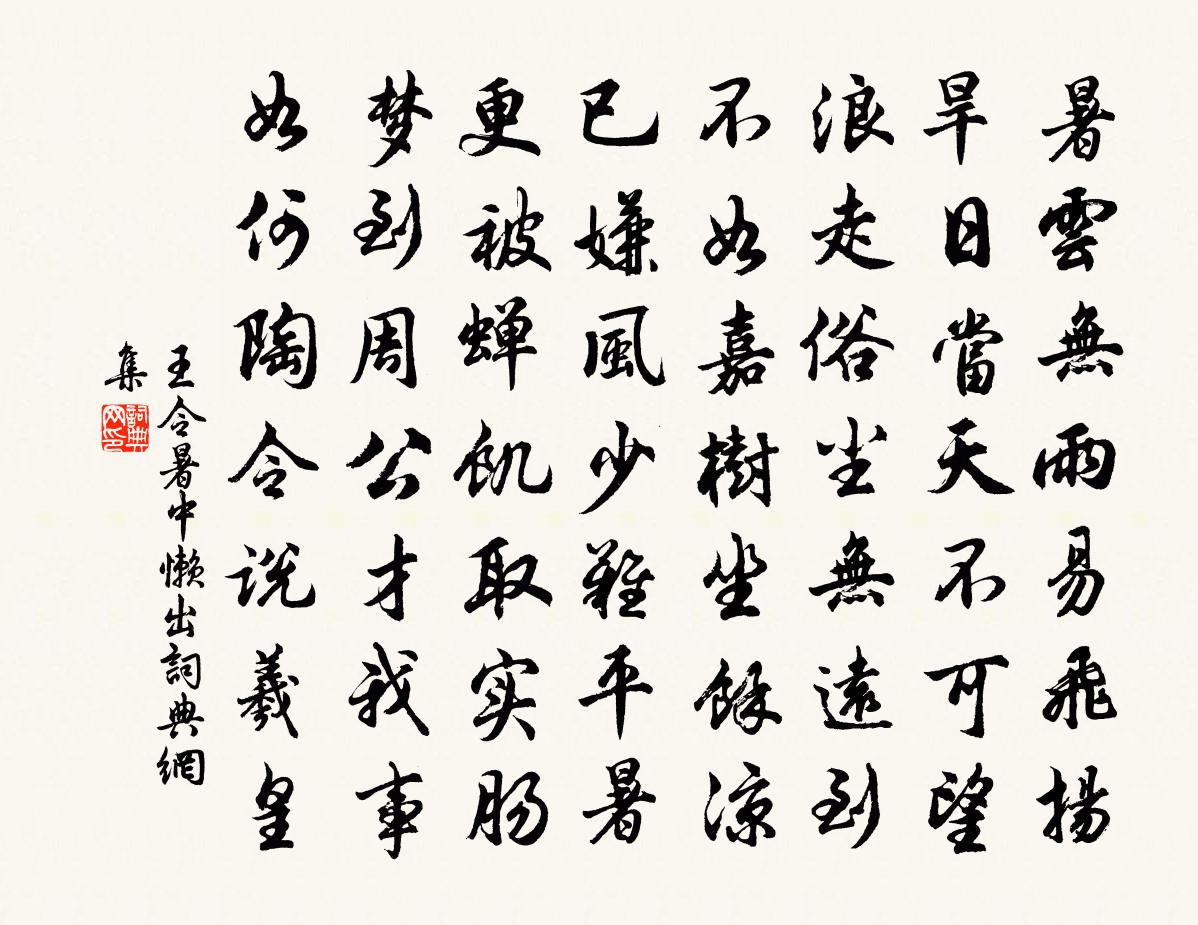 暑雲無雨易飛揚
旱日當天不可望
浪走俗尘無遠到
不如嘉樹坐餘凉
已嫌風少難平暑
更被蝉飢取实肠
梦到周公才我事
如何陶令说羲皇
王令暑中懒出詞典網
集
詞典
网印